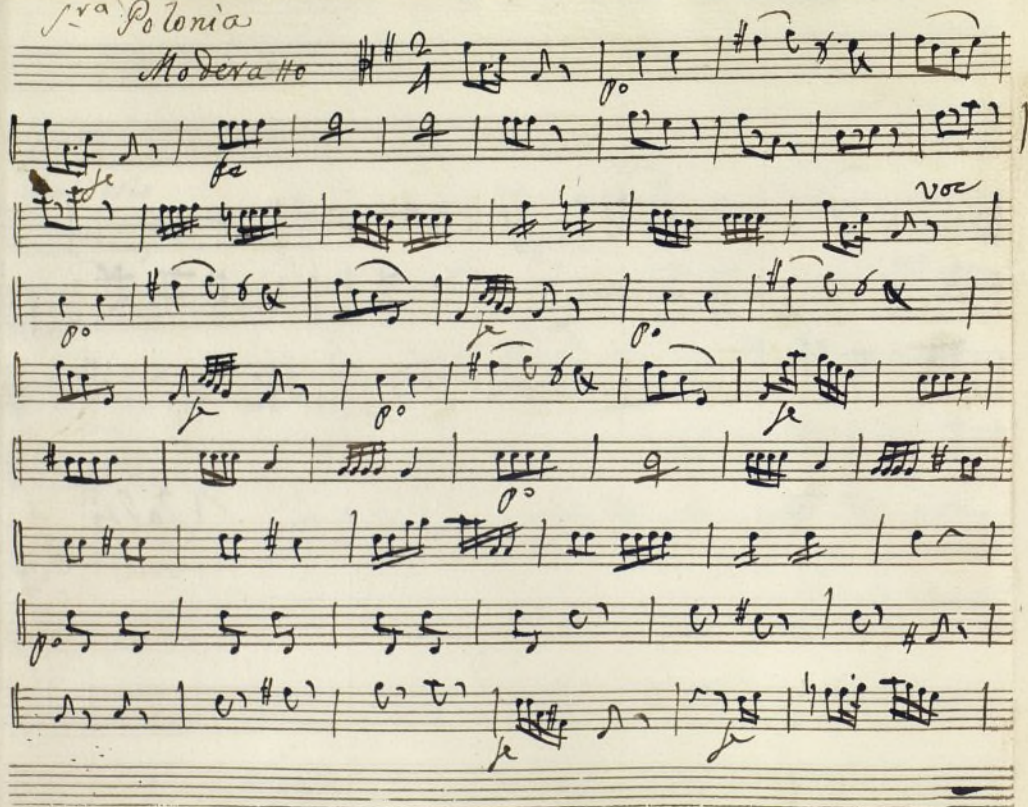 Sra Polonia
Moderatto 2/4
po
fe fe
voc
po fe po
fe po fe
po
po
fe fe